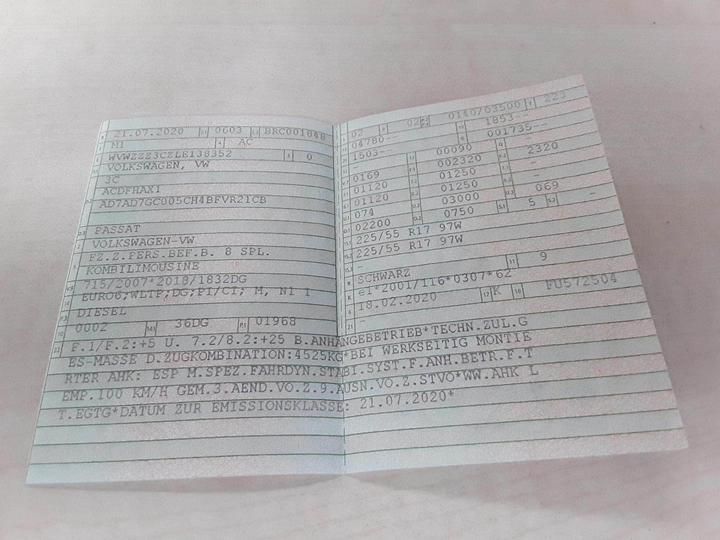 21.07.2020 0603 BRC001848
M1 AC
WVWZZZ3CZLE138352 0
VOLKSWAGEN, VW
3C
ACDFHAX1
AD7AD7GC005CH4BFVR21CB
PASSAT
VOLKSWAGEN-VW
FZ.Z.PERS.BEF.B. 8 SPL.
KOMBILIMOUSINE
715/2007*2018/1832DG
EURO6;WLTP;DG;PI/CI; M, N1 I
DIESEL
0002 36DG 01968
02 02 0140/03500 223
04780-- 1853--
1503-- 001735--
00090
0169 002320 2320
01120 01250
01120 01250
074 03000 069
02200 0750 5 -
225/55 R17 97W
225/55 R17 97W
SCHWARZ 9
e1*2001/116*0307*62
18.02.2020 K FU572504
F.1/F.2:+5 U. 7.2/8.2:+25 B.ANHANGEBETRIEB*TECHN.ZUL.G
ES-MASSE D.ZUGKOMBINATION:4525KG*BEI WERKSEITIG MONTIE
RTER AHK: ESP M.SPEZ.FAHRDYN.STABI.SYST.F.ANH.BETR.F.T
EMP.100 KM/H GEM.3.AEND.VO.Z.9.AUSN.VO.Z.STVO*WW.AHK L
T.EGTG*DATUM ZUR EMISSIONSKLASSE: 21.07.2020*